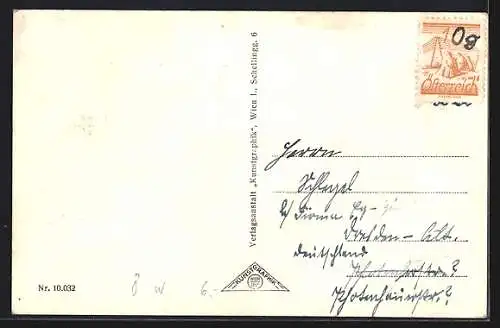 10g
Österreich
Verlagsanstalt „Kunstgraphik", Wien I., Schellingg. 6
Herrn
Schlegel
b/ Firma
Dresden - Alt.
Deutschland
Photenhauerstr.?
Nr. 10.032
W 6.
KUNSTGRAPHIK